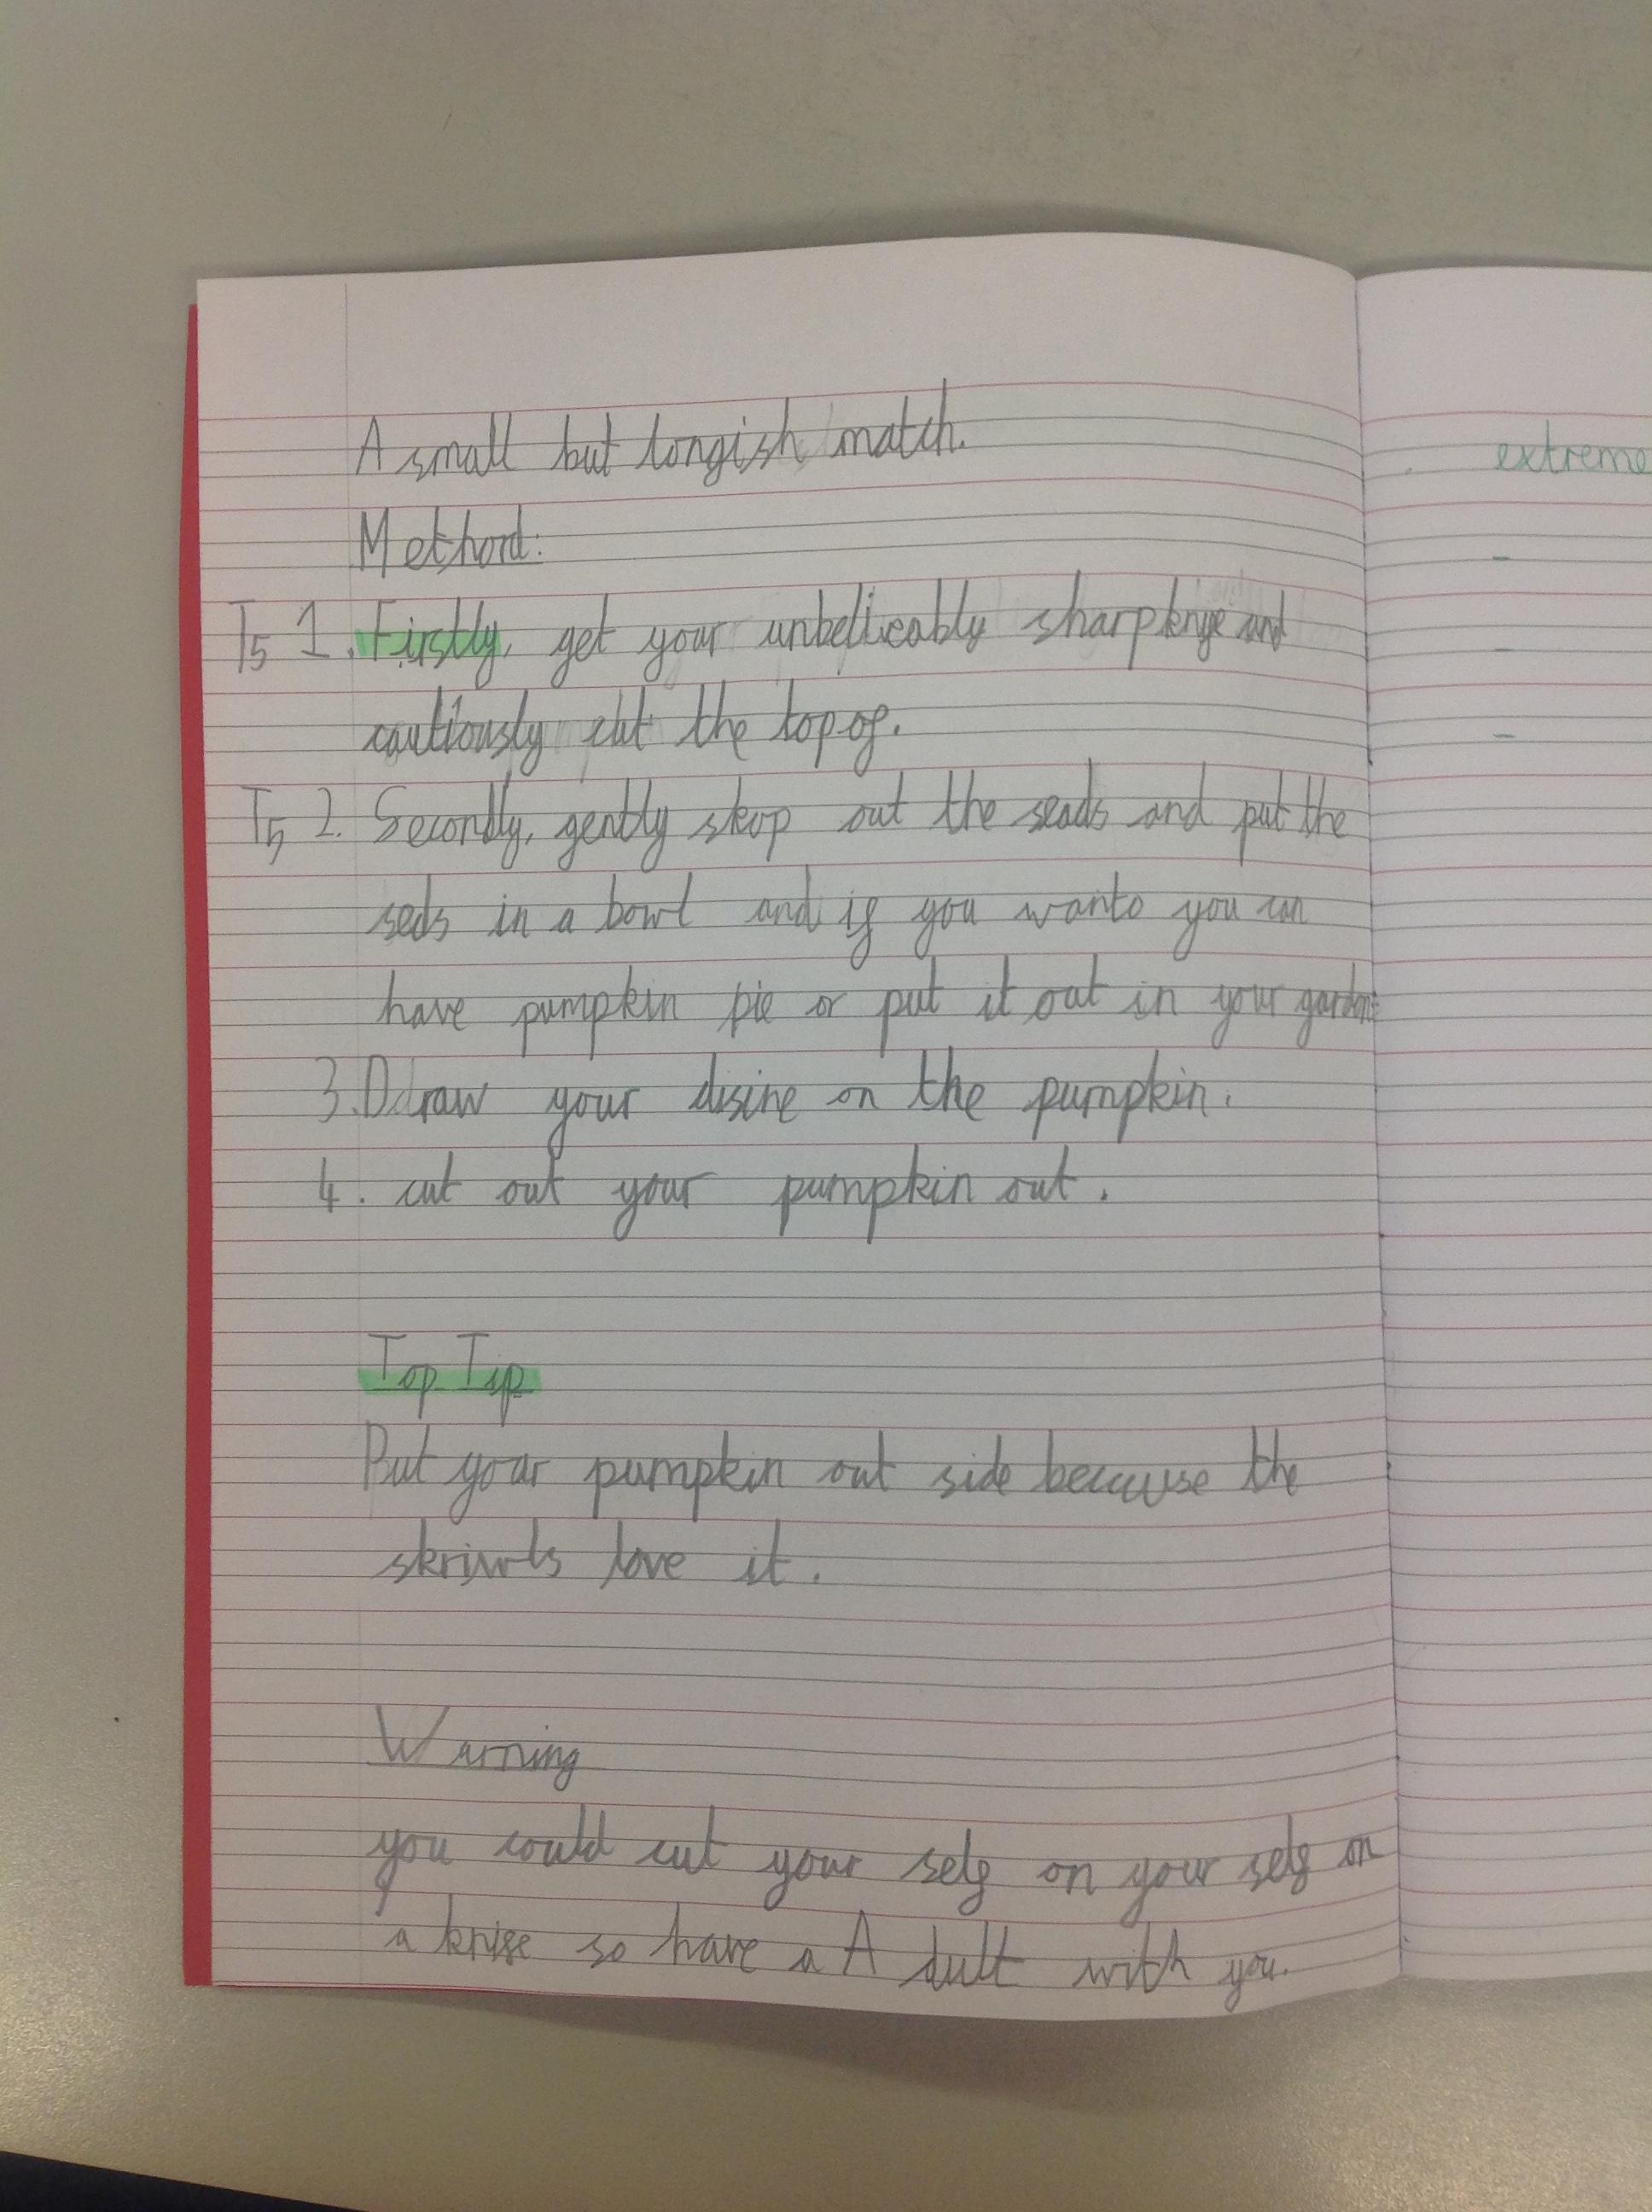 A small but longish match.
Methord:
T5 1. Firstly, get your unbelieably sharp knife and
cautiously cut the top of.
T5 2. Secondly, gently skop out the seads and put the
seds in a bowl and if you wanto you can
have pumpkin pie or put it out in your garden
3. Ddraw your disine on the pumpkin.
4. cut out your pumpkin out.
Top Tip
Put your pumpkin out side because the
skriwls love it.
Warning
you could cut your self on your self on
a knife so have a A dult with you.
extreme
-
-
-